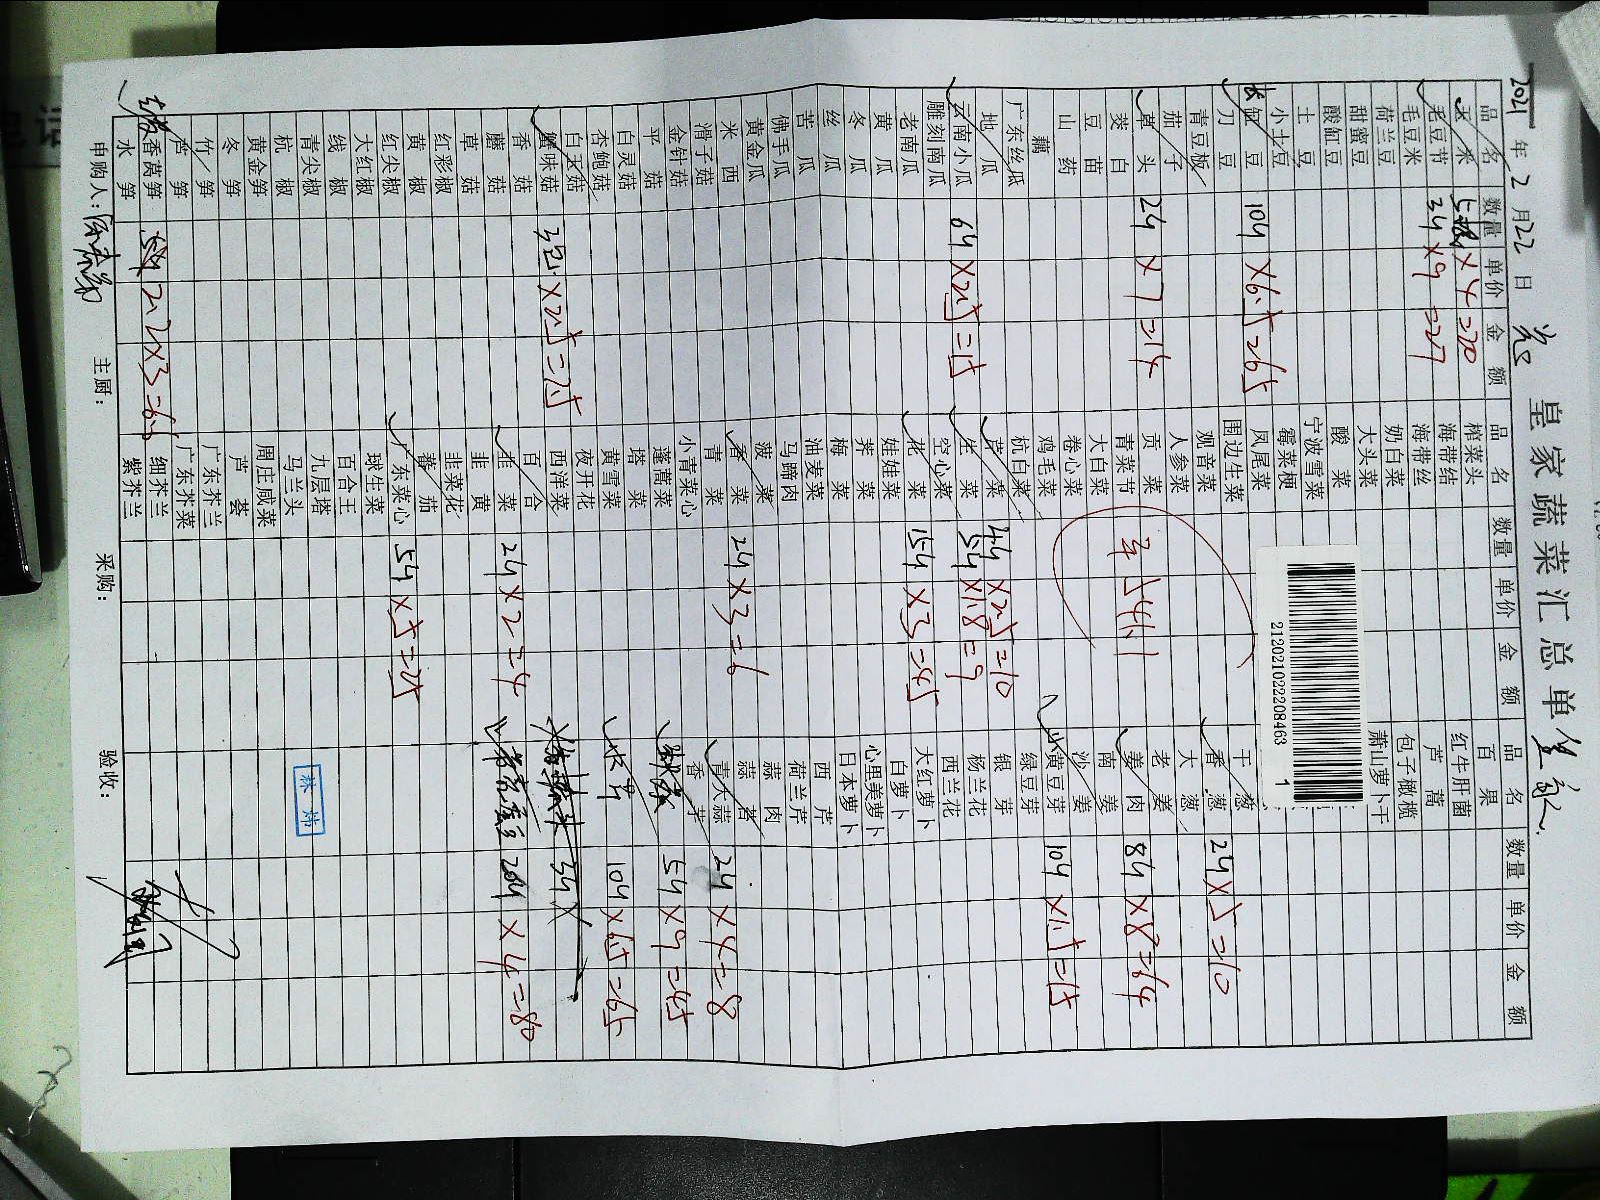 2021年2月22日
皇家蔬菜汇总单
品名 数量 单价 金额 品名 数量 单价 金额 品名 数量 单价 金额
玉米 ×4=20 榨菜头 百果
毛豆节 3斤×9=27 海带结 红牛肝菌
毛豆米 海带丝 芦蒿
荷兰豆 奶白菜 包子橄榄
甜蜜豆 大头菜 萧山萝卜干
酸缸豆 酸菜
土豆 宁波雪菜
小土豆 霉菜梗
长豇豆 10斤×6.5=65 凤尾菜
刀豆 围边生菜 干葱
青豆板 观音菜 香葱 2斤×5=10
茄子 人参菜 大葱
草头 2斤×7=14 贡菜 老姜
茭白 青菜节 541.1 姜肉 8斤×8=64
豆苗 大白菜 南姜
山药 卷心菜 沙姜
藕 鸡毛菜 小黄豆芽 10斤×1.5=15
广东丝瓜 杭白菜 绿豆芽
地瓜 芹菜 4斤×2.5=10 银芽
云南小瓜 6斤×2.5=15 生菜 5斤×1.8=9 杨兰花
雕刻南瓜 空心菜 西兰花
老南瓜 花菜 15斤×3=45 大红萝卜
黄瓜 娃娃菜 白萝卜
冬瓜 荠菜 心里美萝卜
丝瓜 梅菜 日本萝卜
苦瓜 油麦菜 西芹
佛手瓜 马蹄肉 荷兰芹
黄金瓜 菠菜 蒜肉
米西 香菜 2斤×3=6 蒜
滑子菇 青菜 青大蒜 2斤×4=8
金针菇 小青菜心 香芋
平菇 蓬蒿菜 5斤×9=45
白灵菇 塔菜
杏鲍菇 黄雪菜 10斤×6.5=65
白玉菇 夜开花
蟹味菇 ×2.5=25 西洋菜 3斤×
香菇 百合
蘑菇 韭菜 2斤×2=4 20斤×4=80
草菇 韭黄
红彩椒 韭菜花
黄椒 番茄
红尖椒 广东菜心 5斤×5=25
大红椒 球生菜
线椒 百合王
青尖椒 九层塔
杭椒 马兰头
黄金笋 周庄咸菜
冬笋 芦荟
竹笋 广东芥兰
芦笋 广东芥菜
香莴笋 2.2×3=6.6 细芥兰
水笋 紫芥兰
申购人: 主厨: 采购: 验收:
林炜
2120210222084631